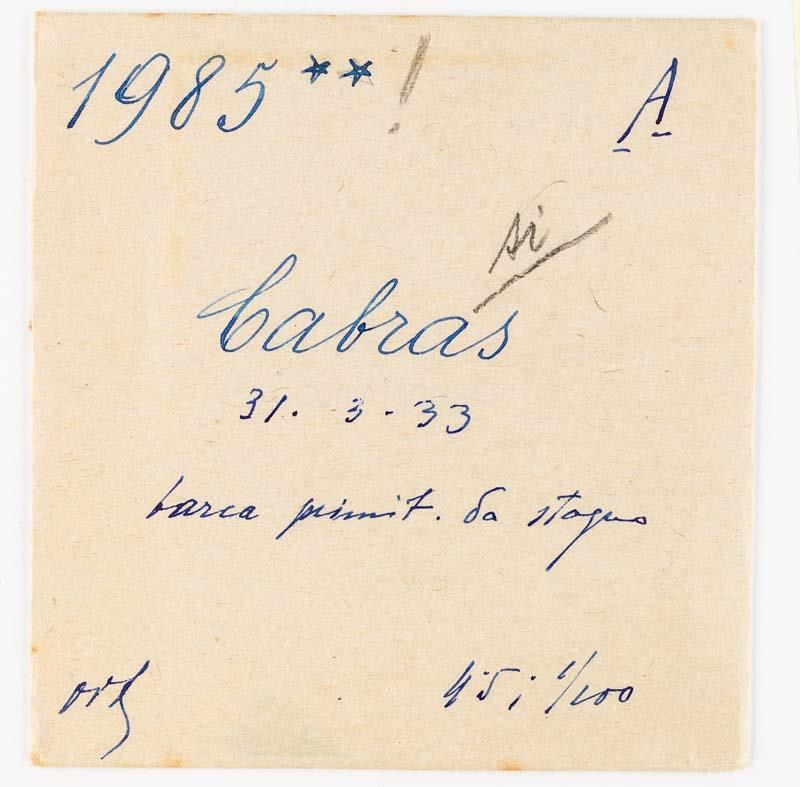 1985 ** ! A
si
Cabras
31. 3. 33
barca primit. da stagno
4.5; 1/100